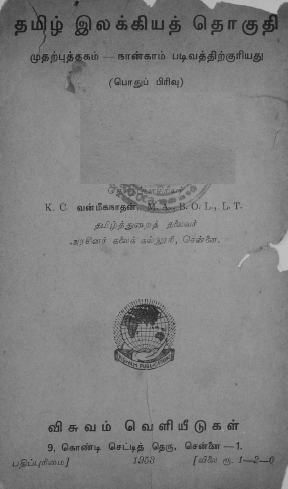 தமிழ் இலக்கியத் தொகுதி
முதற்புத்தகம் — நான்காம் படிவத்திற்குரியது
(பொதுப் பிரிவு)
K. C. வன்மீகநாதன், M. A., B. O. L., L. T.
தமிழ்த்துறைத் தலைவர்
அரசினர் கலைக் கல்லூரி, சென்னை.
விசுவம் வெளியீடுகள்
9, கொண்டி செட்டித் தெரு, சென்னை — 1.
பதிப்புரிமை] 1953 [விலை ரூ. 1—2—0